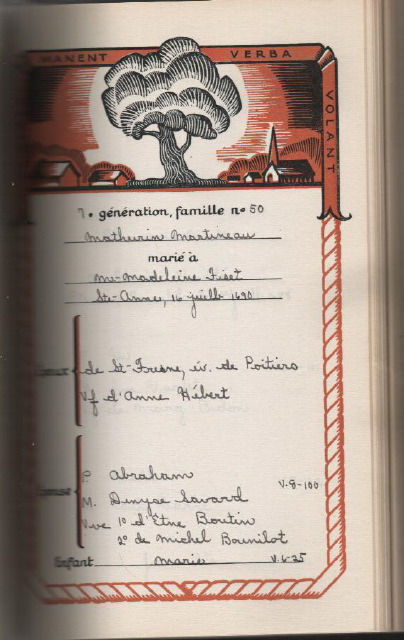 MANENT VERBA VOLANT
7e génération, famille no 50
Mathurin Martineau
marié à
M-Madeleine Fiset
Ste-Anne, 16 juill 1690
de St-Fresne, év. de Poitiers
Vf d'Anne Hébert
P. Abraham
V-8-100
M. Denyse Savard
Vve 1º d'Etne Boutin
2º de Michel Bounilot
Enfant Marie V.6-25